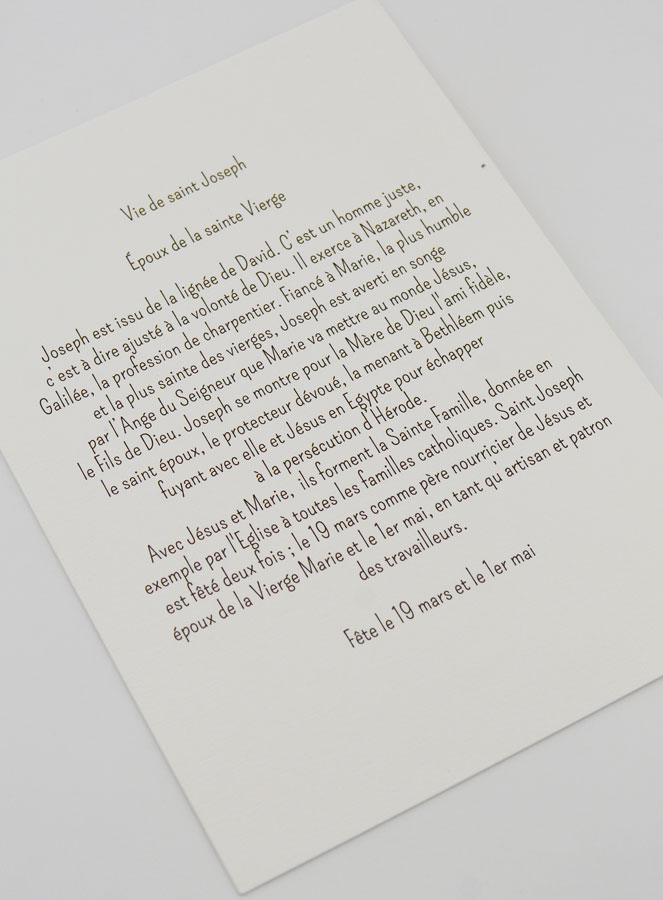 Vie de saint Joseph
Époux de la sainte Vierge
Joseph est issu de la lignée de David. C'est un homme juste,
c'est à dire ajusté à la volonté de Dieu. Il exerce à Nazareth, en
Galilée, la profession de charpentier. Fiancé à Marie, la plus humble
et la plus sainte des vierges, Joseph est averti en songe
par l'Ange du Seigneur que Marie va mettre au monde Jésus,
le Fils de Dieu. Joseph se montre pour la Mère de Dieu l'ami fidèle,
le saint époux, le protecteur dévoué, la menant à Bethléem puis
fuyant avec elle et Jésus en Egypte pour échapper
à la persécution d'Hérode.
Avec Jésus et Marie, ils forment la Sainte Famille, donnée en
exemple par l'Eglise à toutes les familles catholiques. Saint Joseph
est fêté deux fois ; le 19 mars comme père nourricier de Jésus et
époux de la Vierge Marie et le 1er mai, en tant qu'artisan et patron
des travailleurs.
Fête le 19 mars et le 1er mai